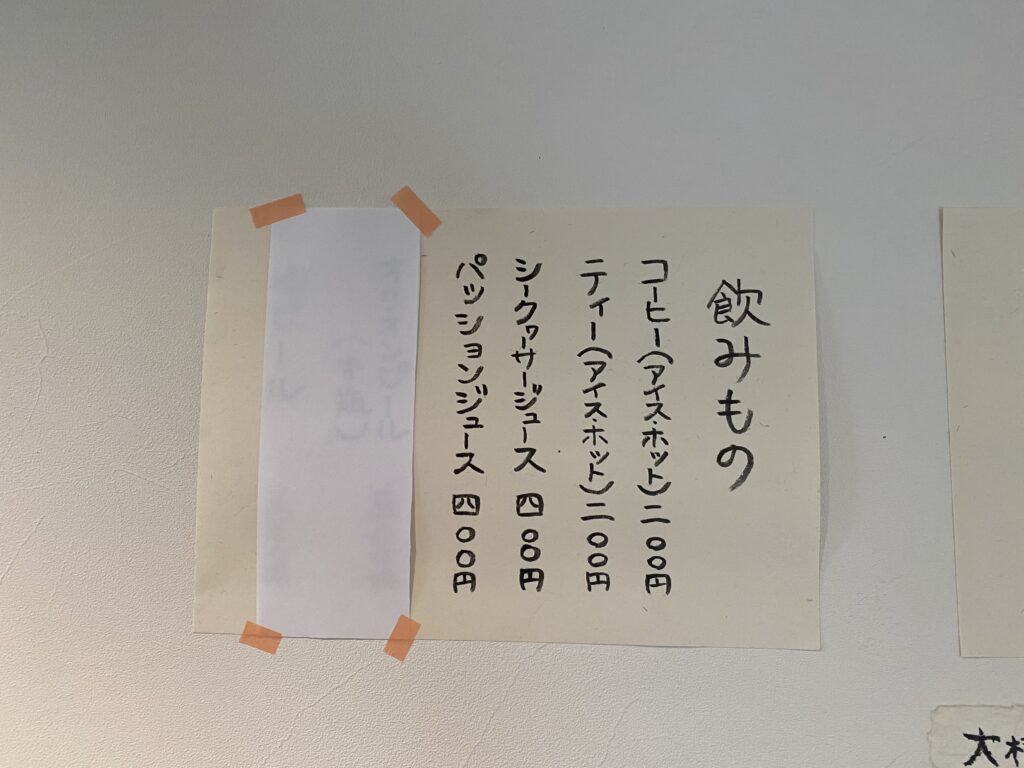 飲みもの
コーヒー(アイス・ホット)二〇〇円
ティー(アイス・ホット)二〇〇円
シークヮサージュース 四〇〇円
パッションジュース 四〇〇円
大